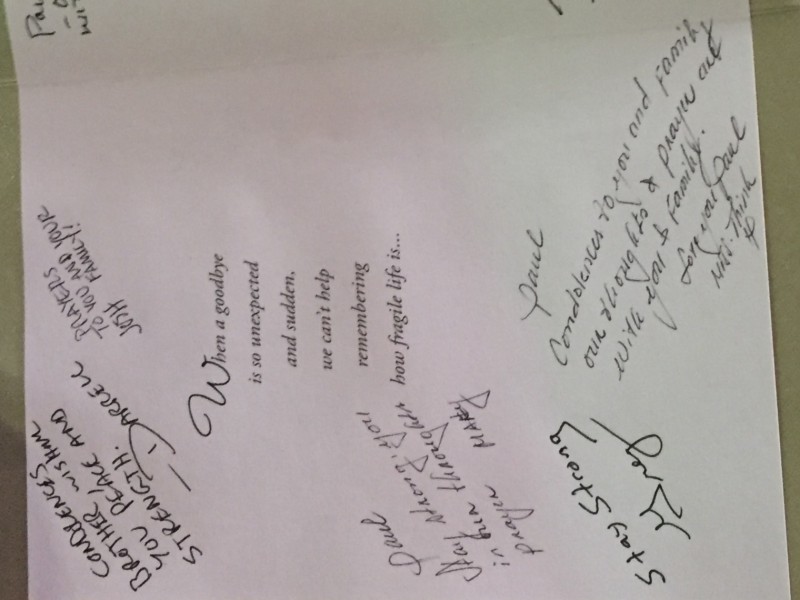 CONDOLENCES
BROTHER WISHING
YOU PEACE AND
STRENGTH.
— DARRELL
PRAYERS
TO YOU AND YOUR
FAMILY!
JOSH
When a goodbye
is so unexpected
and sudden,
we can't help
remembering
how fragile life is...
Paul
Stay strong, you
in
prayers
Stay Strong
Greg
Paul
Condolences to you and family
our thoughts & prayer are
with you & family.
Love you Paul